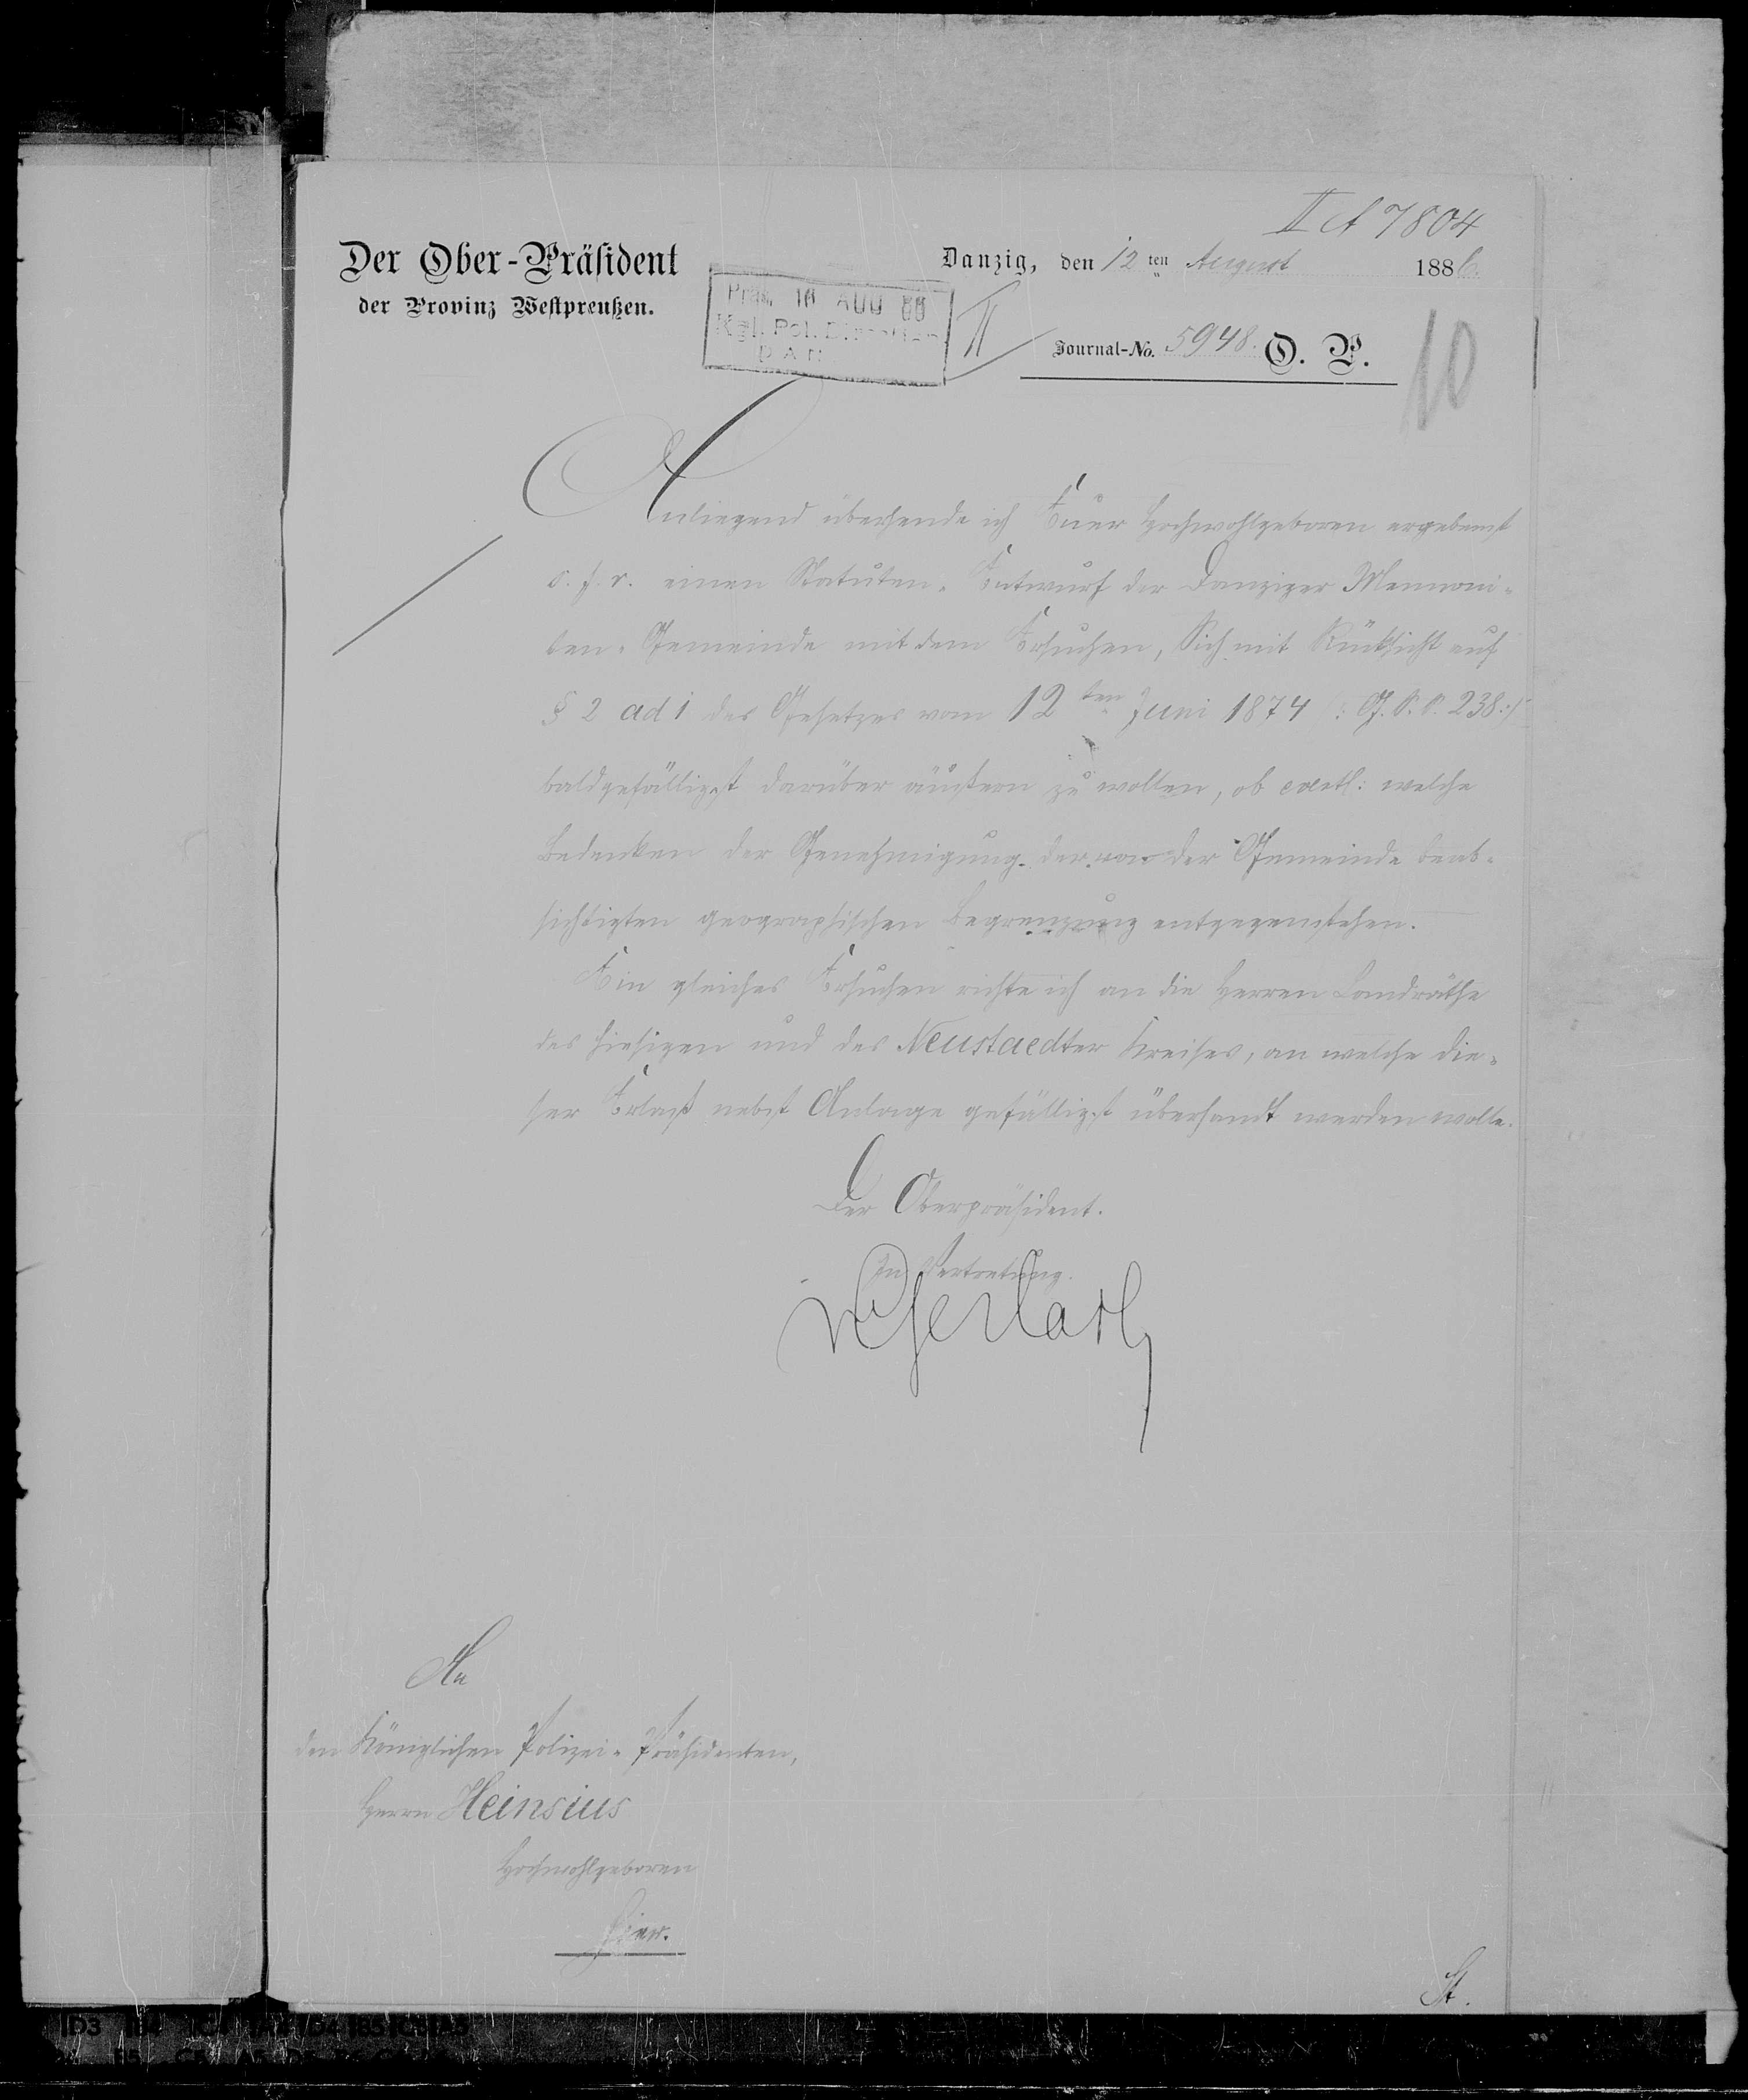 II A 7804
Der Ober-Präsident
der Provinz Westpreußen.
Danzig, den 12 ten August 1886.
Präs. 16 AUG 86
Kgl. Pol. Direction
DAN
II
Journal-No. 5948. O. P.
10
Anliegend übersende ich Euer Hochwohlgeboren ergebenst
s. p. r. einen Statuten-Entwurf der Danziger Mennoni-
ten-Gemeinde mit dem Ersuchen, Sich mit Rücksicht auf
§ 2 ad 1 des Gesetzes vom 12ten Juni 1874 (: G. S. S. 238 :)
baldgefälligst darüber äußern zu wollen, ob eventl: welche
Bedenken der Genehmigung der von der Gemeinde beab-
sichtigten geographischen Begrenzung entgegenstehen.
Ein gleiches Ersuchen richte ich an die Herren Landräthe
des hiesigen und des Neustaedter Kreises, an welche die-
ser Erlaß nebst Anlage gefälligst übersandt werden wolle.
Der Oberpräsident.
In Vertretung.
An
den Königlichen Polizei-Präsidenten,
Herrn Heinsius
Hochwohlgeboren
hier.
St.